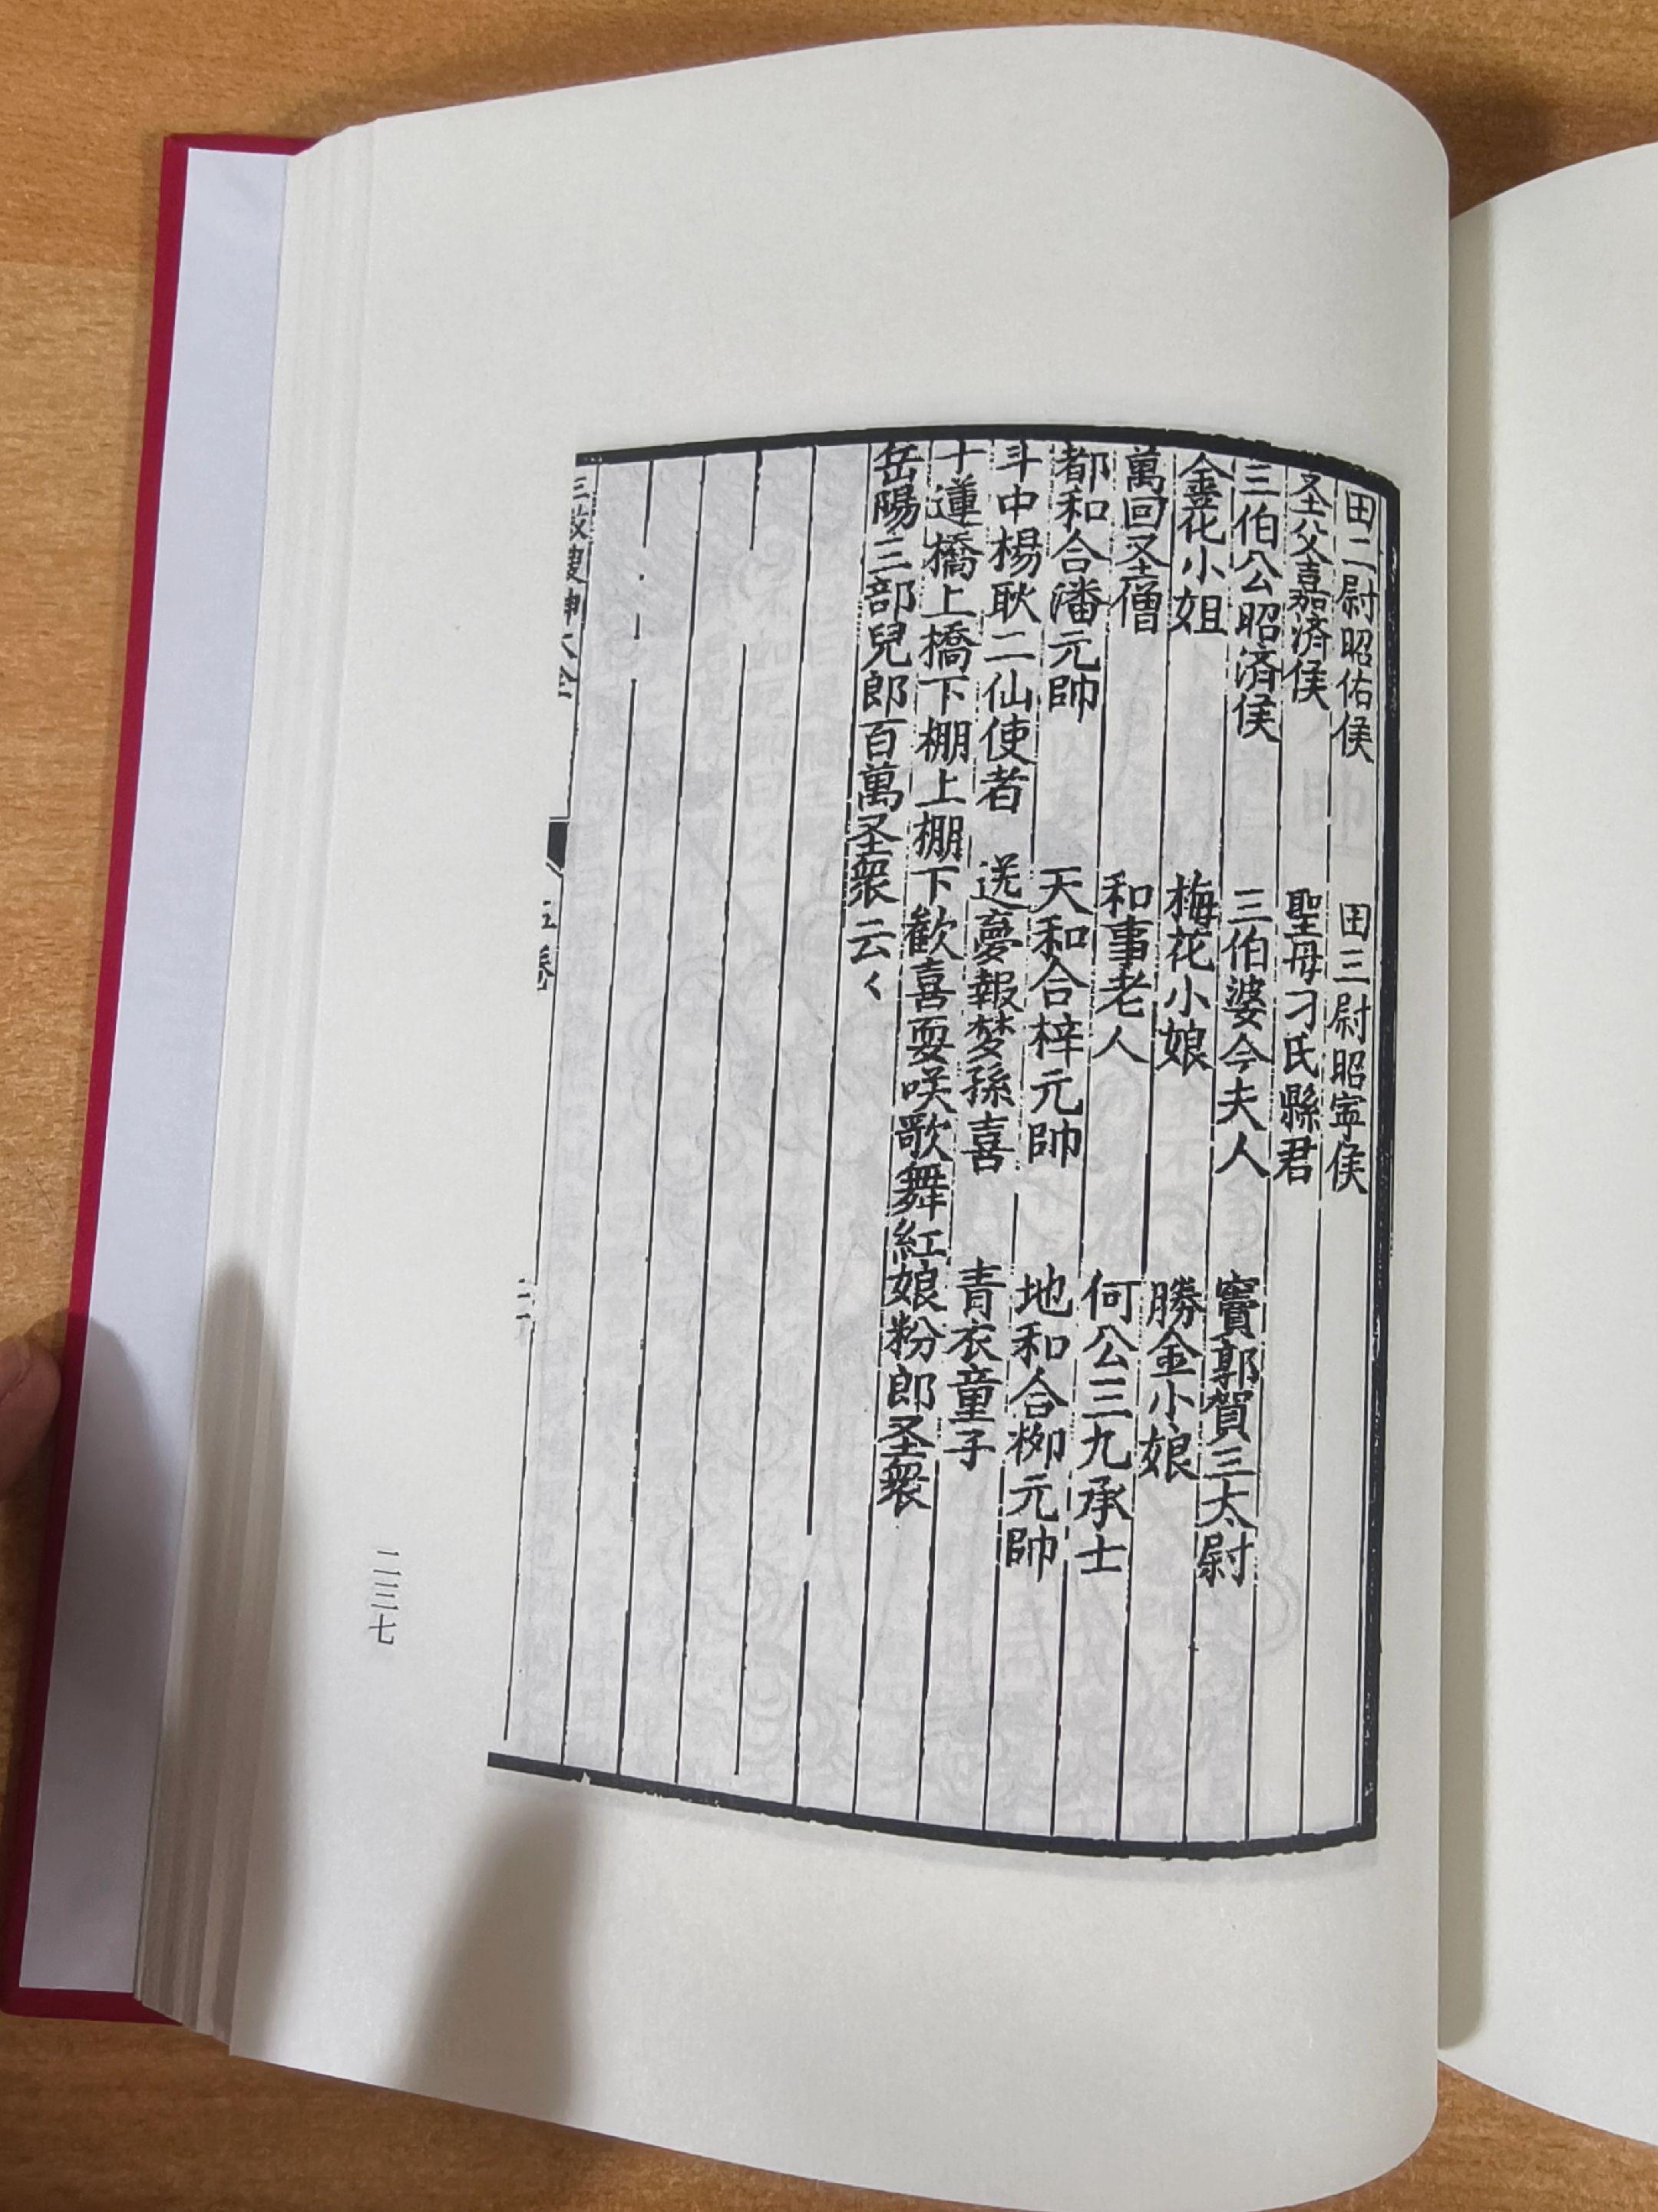 田二尉昭佑侯　田三尉昭寜侯
圣父嘉济侯　聖母刁氏縣君
三伯公昭济侯　三伯婆今夫人　竇郭賀三太尉
金花小姐　梅花小娘　勝金小娘
萬回圣僧　和事老人　何公三九承士
都和合潘元帥　天和合梓元帥　地和合栁元帥
斗中楊耿二仙使者　送夣報梦孫喜　青衣童子
十蓮橋上橋下棚上棚下歡喜耍咲歌舞紅娘粉郎圣衆
岳陽三部兒郎百萬圣衆云〱
三教搜神大全
五卷
二三七